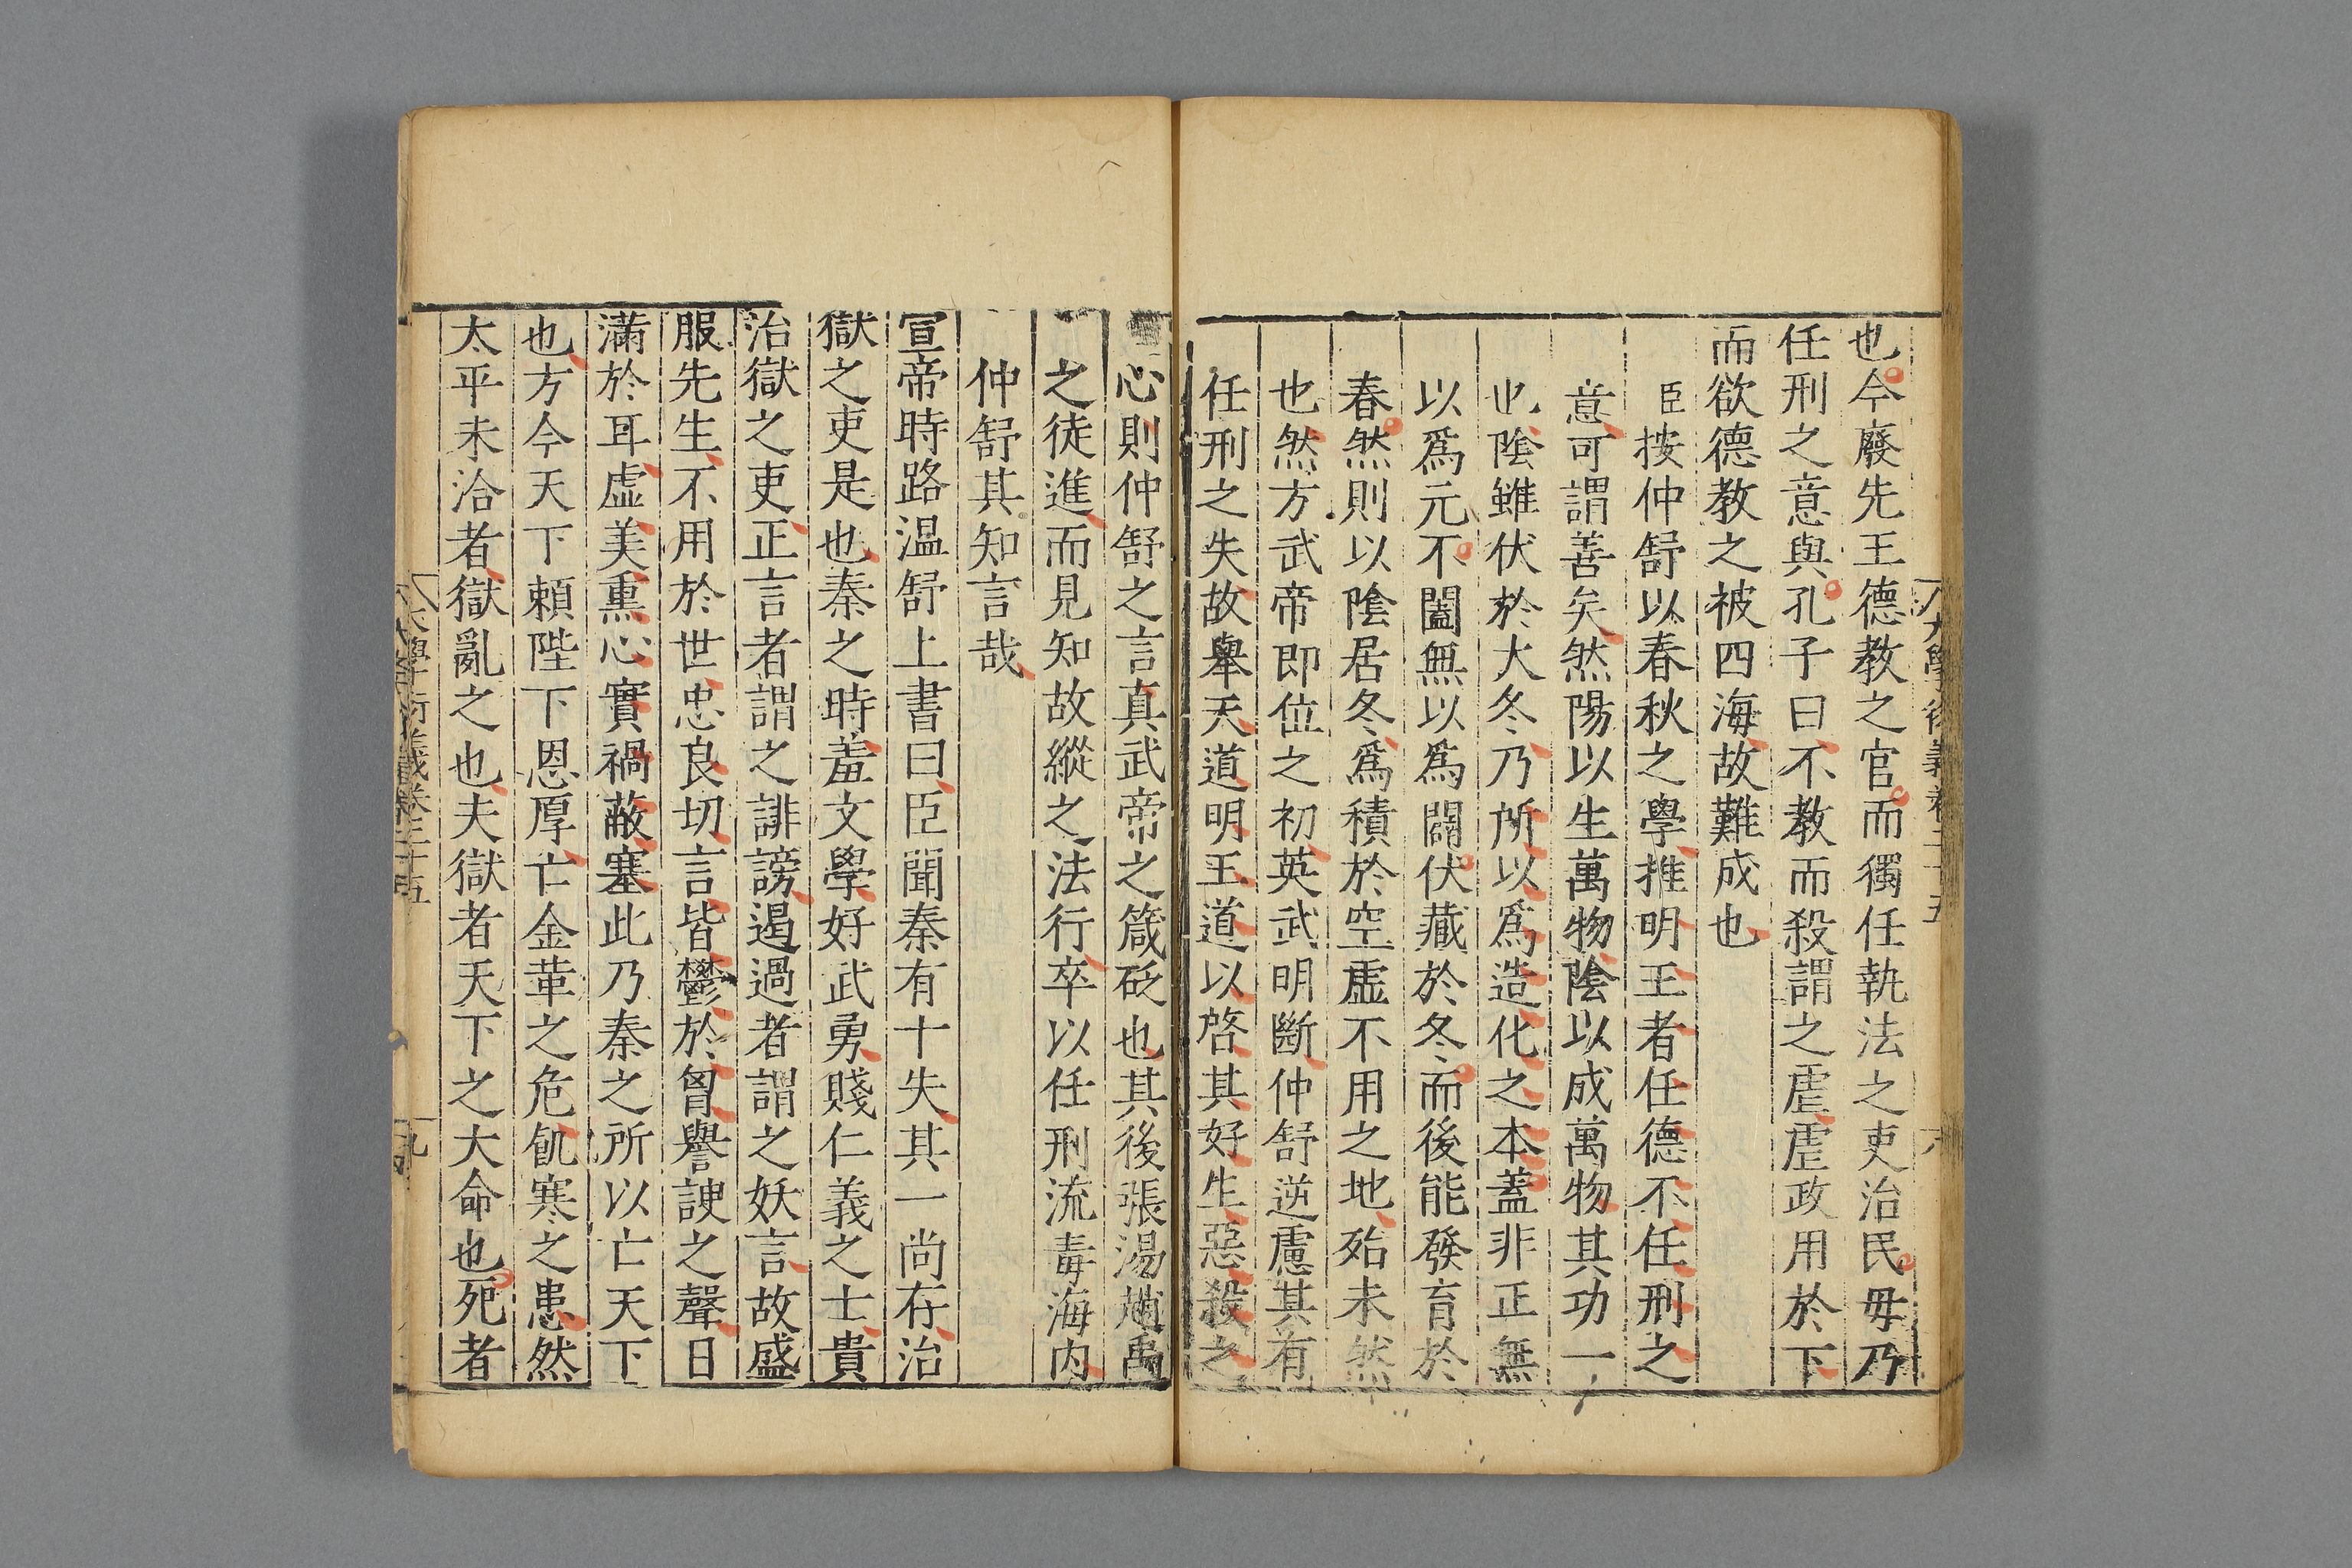 也今廢先王德教之官而獨任執法之吏治民毋乃
任刑之意與孔子曰不教而殺謂之虐虐政用於下
而欲德教之被四海故難成也
臣按仲舒以春秋之學推明王者任德不任刑之
意可謂善矣然陽以生萬物陰以成萬物其功一
也陰雖伏於大冬乃所以爲造化之本蓋非正無
以爲元不闔無以爲闢伏藏於冬而後能發育於
春然則以陰居冬爲積於空虛不用之地殆未然
也然方武帝即位之初英武明斷仲舒逆慮其有
任刑之失故舉天道明王道以啓其好生惡殺之
心則仲舒之言真武帝之箴砭也其後張湯趙禹
之徒進而見知故縱之法行卒以任刑流毒海内
仲舒其知言哉
宣帝時路温舒上書曰臣聞秦有十失其一尚存治
獄之吏是也秦之時羞文學好武勇賤仁義之士貴
治獄之吏正言者謂之誹謗遏過者謂之妖言故盛
服先生不用於世忠良切言皆鬱於胷譽諛之聲日
滿於耳虛美熏心實禍蔽塞此乃秦之所以亡天下
也方今天下賴陛下恩厚亡金革之危飢寒之患然
太平未洽者獄亂之也夫獄者天下之大命也死者
大學衍義卷二十五
九